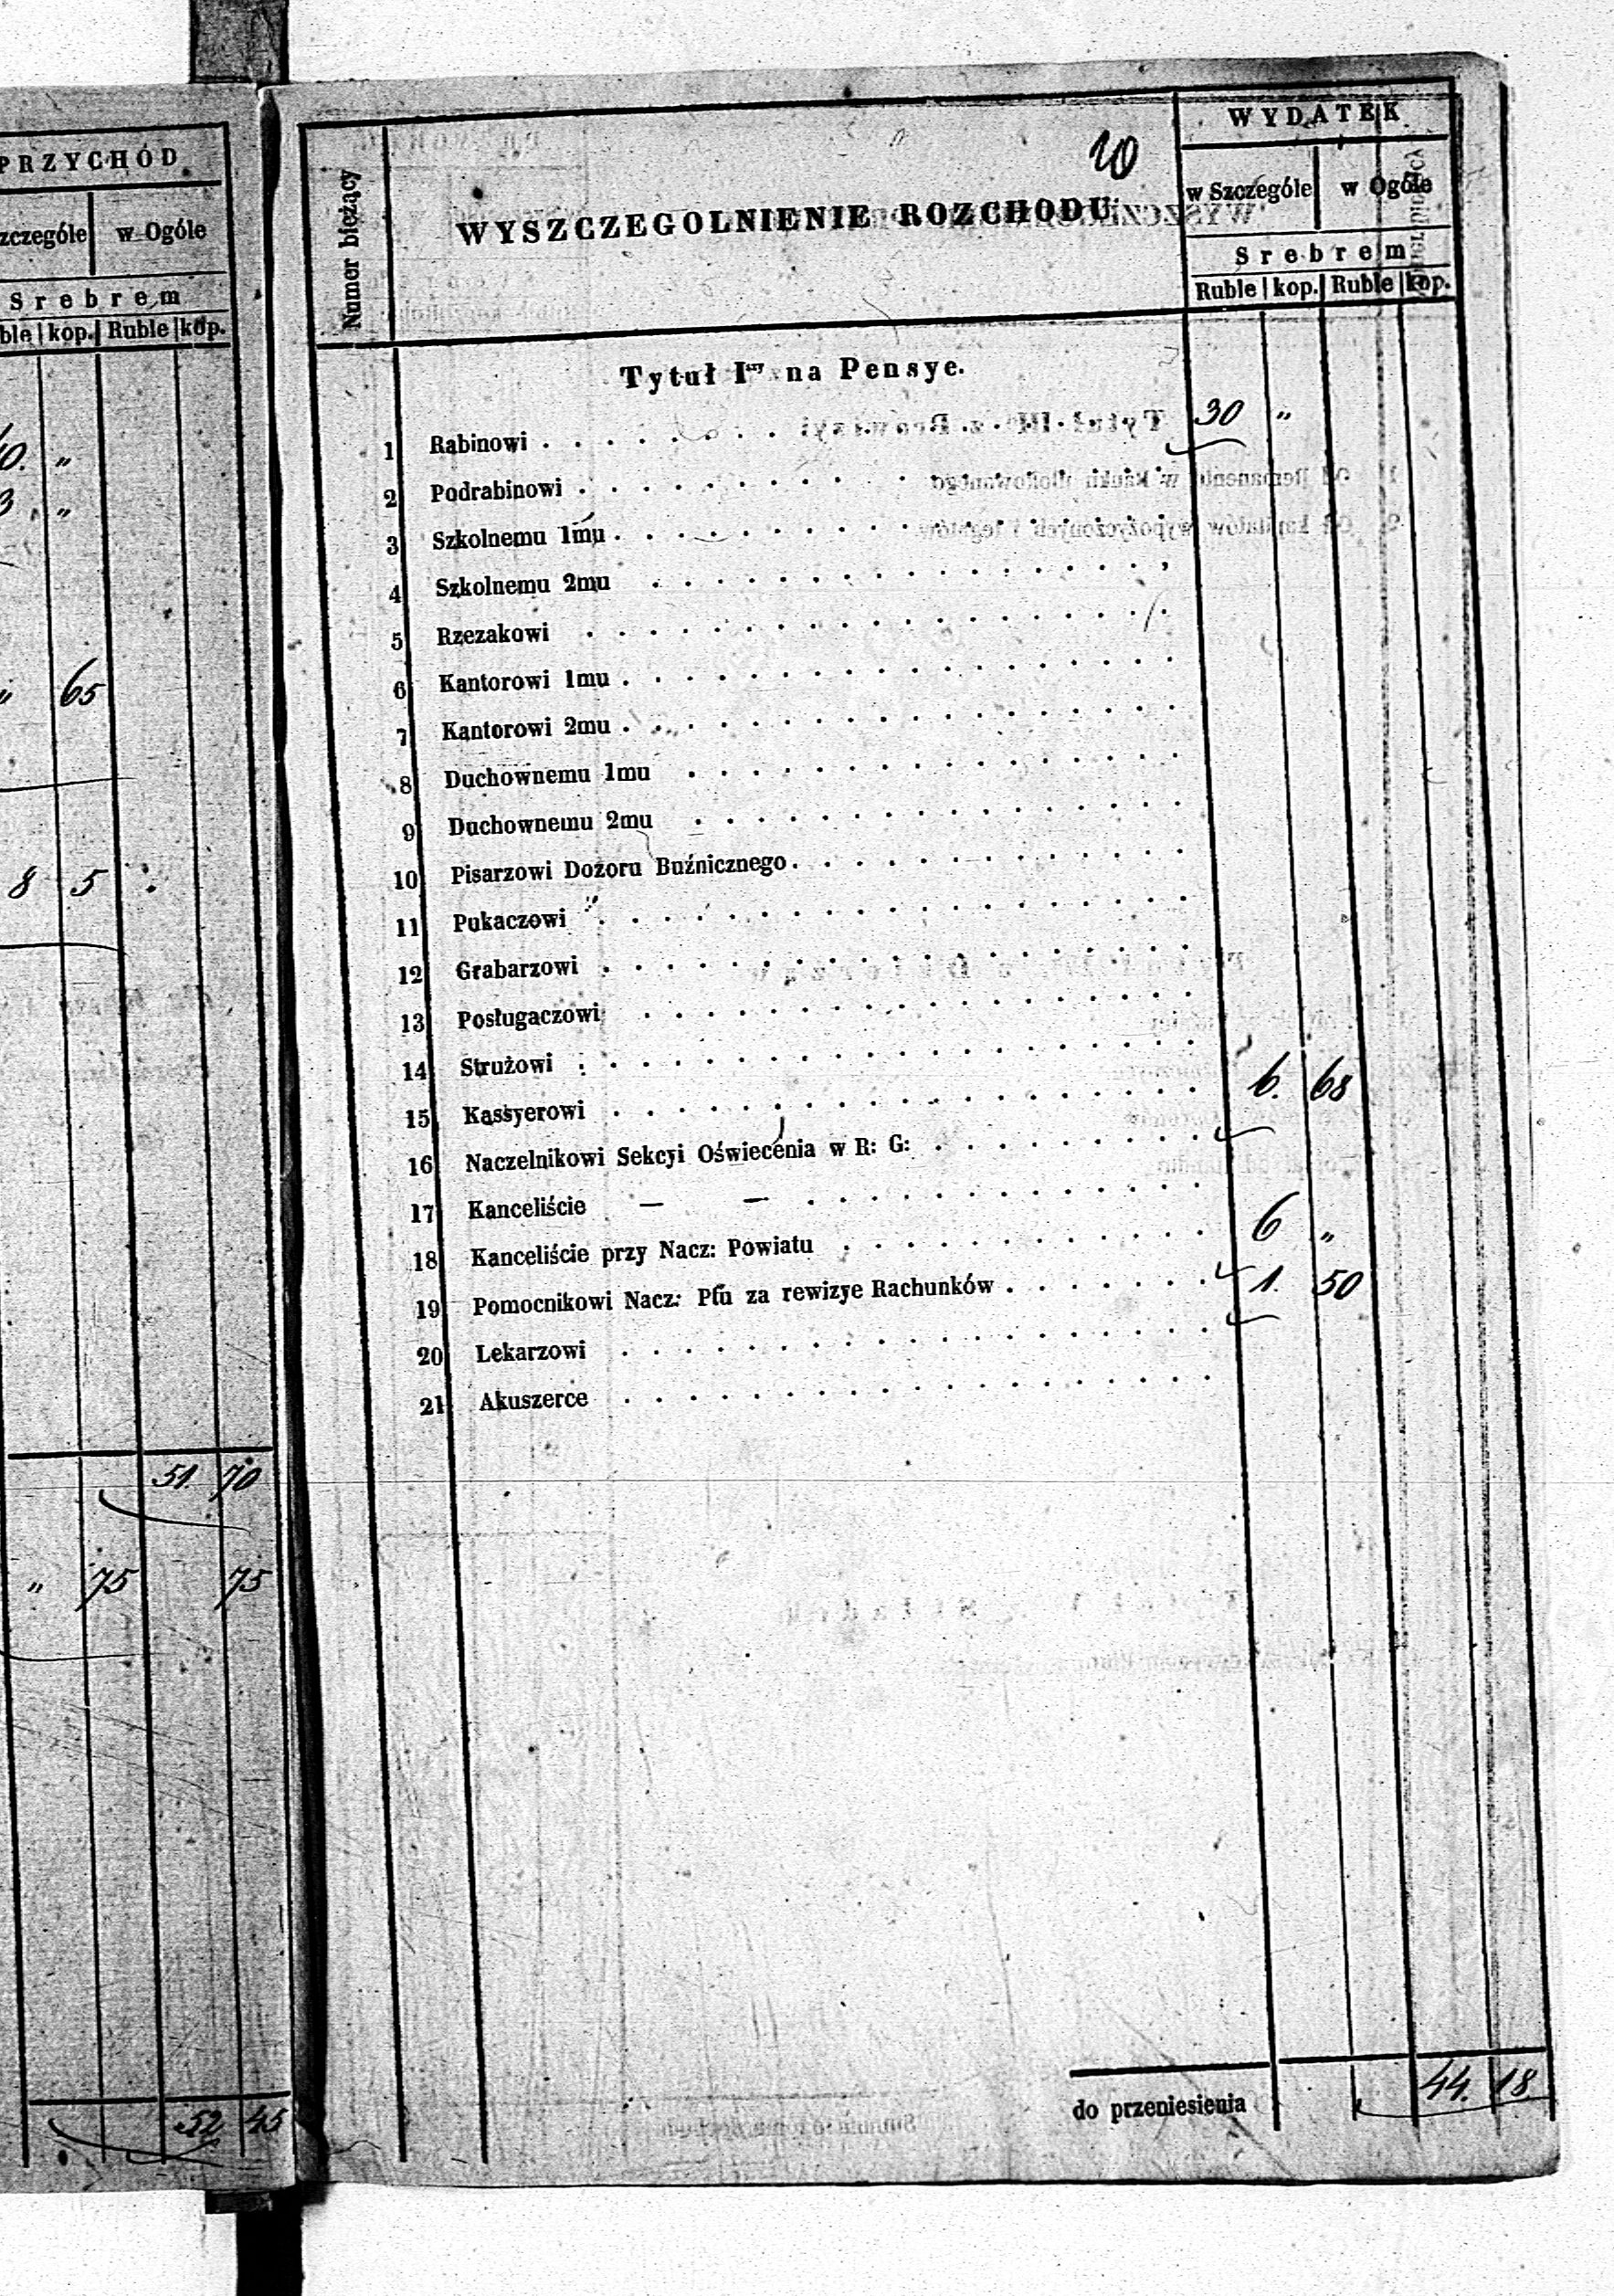 PRZYCHÓD
zczególe w Ogóle
Srebrem
ble kop. Ruble kop.
0. "
3 "
" 65
8 5
51. 70
" 75 75
52 45
10
WYDATEK
Numer bieżący
WYSZCZEGOLNIENIE ROZCHODU
w Szczególe w Ogóle
Srebrem
Ruble kop. Ruble kop.
Tytuł Iszy na Pensye.
1 Rabinowi . . . . . . . . 30 "
2 Podrabinowi . . . . . . . .
3 Szkolnemu 1mu . . . . . . . .
4 Szkolnemu 2mu . . . . . . . .
5 Rzezakowi . . . . . . . .
6 Kantorowi 1mu . . . . . . . .
7 Kantorowi 2mu . . . . . . . .
8 Duchownemu 1mu . . . . . . . .
9 Duchownemu 2mu . . . . . . . .
10 Pisarzowi Dozoru Buźnicznego . . . . . . . .
11 Pukaczowi . . . . . . . .
12 Grabarzowi . . . . . . . .
13 Posługaczowi . . . . . . . .
14 Strużowi . . . . . . . .
15 Kassyerowi . . . . . . . . 6. 68
16 Naczelnikowi Sekcyi Oświecenia w R: G: . . . . . . . .
17 Kanceliście — — . . . . . . . .
18 Kanceliście przy Nacz: Powiatu . . . . . . . . 6 "
19 Pomocnikowi Nacz: Ptu za rewizye Rachunków . . . . . . . 1. 50
20 Lekarzowi . . . . . . . .
21 Akuszerce . . . . . . . .
do przeniesienia 44. 18